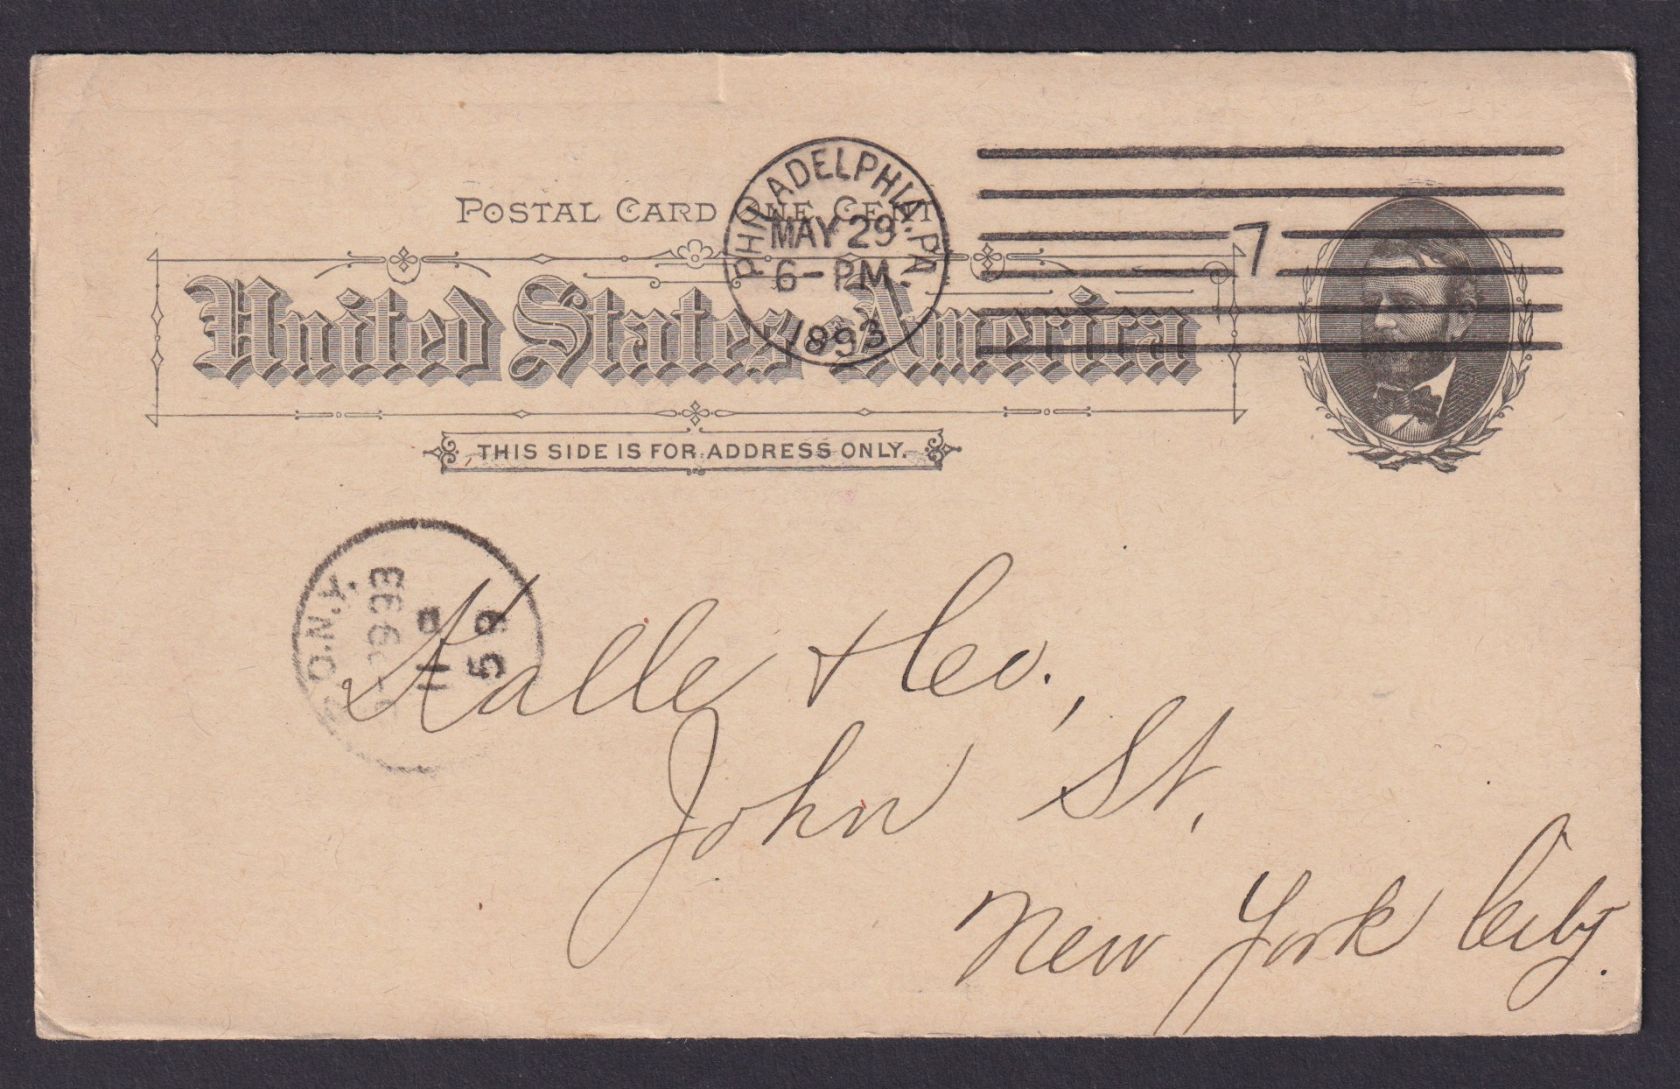 POSTAL CARD ONE CENT
United States of America
THIS SIDE IS FOR ADDRESS ONLY.
PHILADELPHIA. PA.
MAY 29
6-PM.
1893
7
N.Y.
Kalle & Co.,
John St.
New York City.